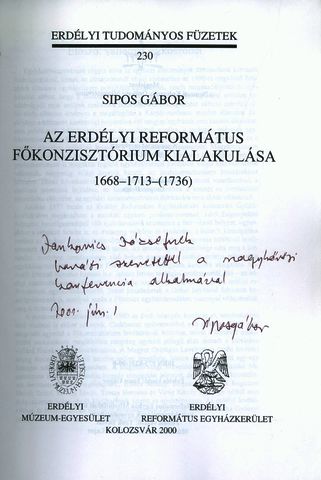 ERDÉLYI TUDOMÁNYOS FÜZETEK
230
SIPOS GÁBOR
AZ ERDÉLYI REFORMÁTUS
FŐKONZISZTÓRIUM KIALAKULÁSA
1668–1713–(1736)
Jankovics Józsefnek
baráti szeretettel a nagykőrösi
konferencia alkalmával
2001. jún. 1
Sipos Gábor
ERDÉLYI
MÚZEUM-EGYESÜLET
ERDÉLYI
REFORMÁTUS EGYHÁZKERÜLET
KOLOZSVÁR 2000